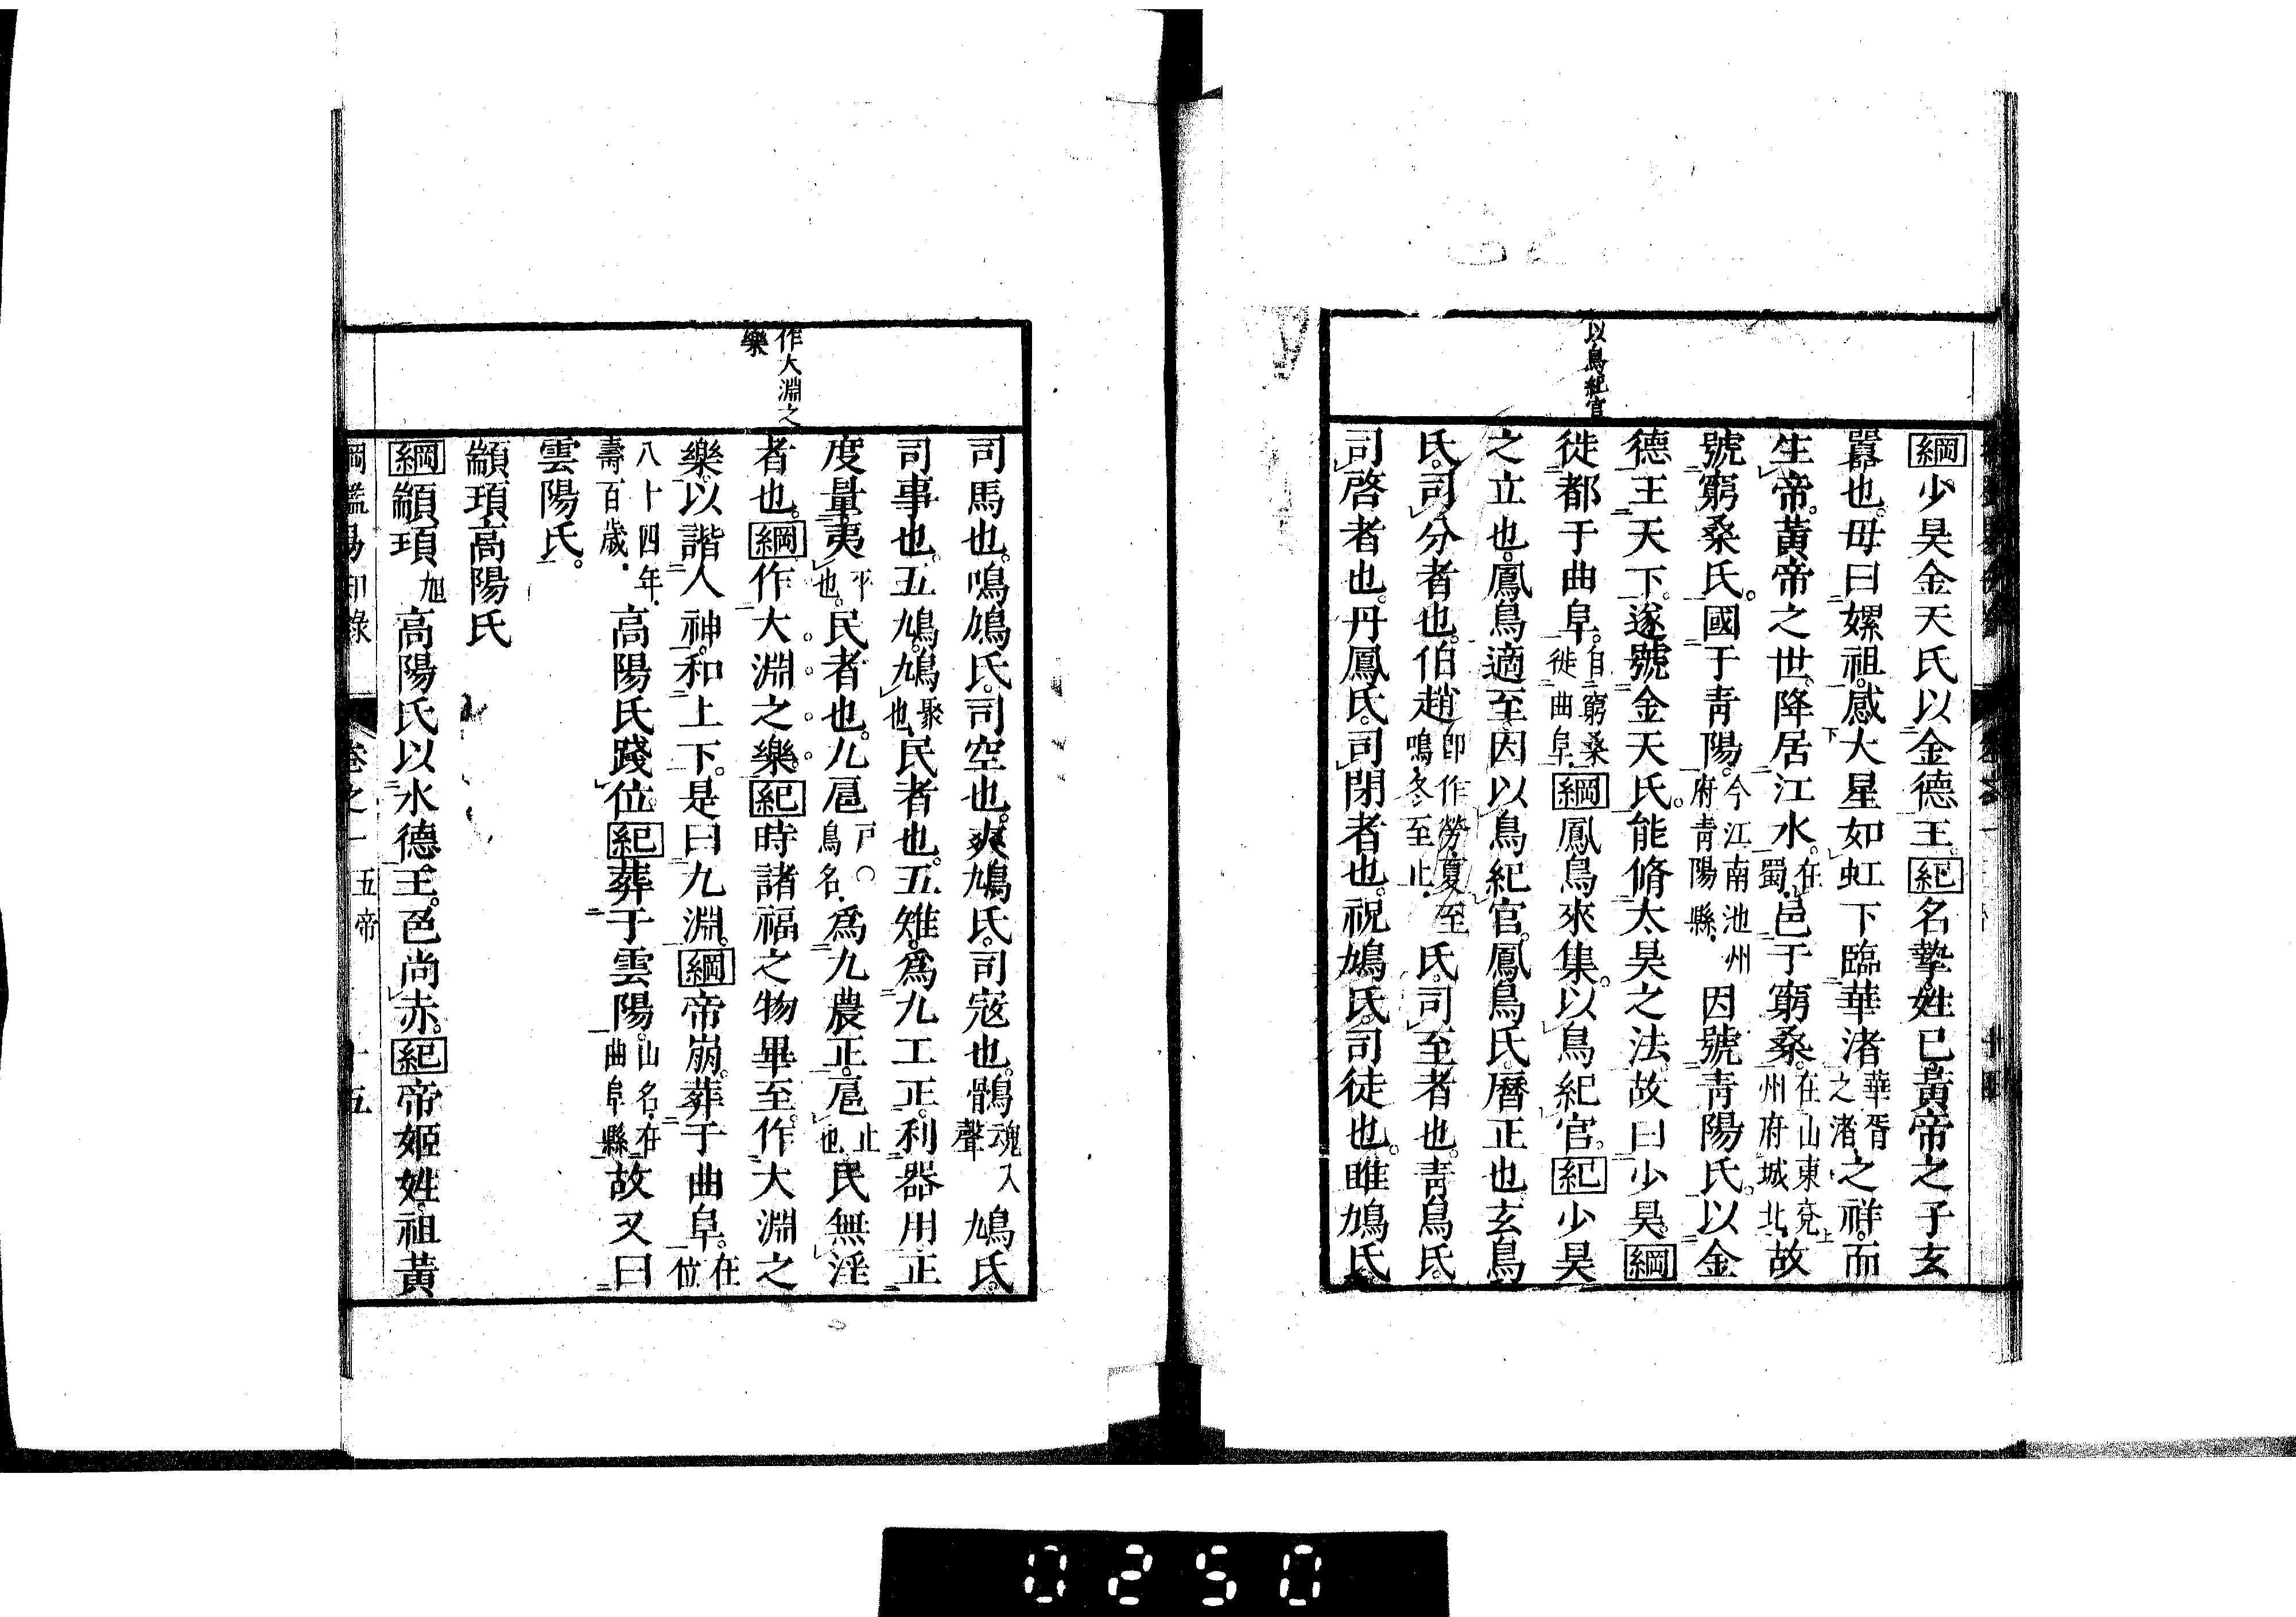 以鳥紀官
綱少昊金天氏以金德王。紀名摯。姓已。黃帝之子玄
囂也。母曰嫘祖。感大星如虹下臨華渚華胥之渚之祥。而
生帝。黃帝之世。降居江水。在蜀邑于窮桑。在山東兗州府城北故
號窮桑氏。國于青陽。今江南池州府青陽縣因號青陽氏。以金
德王天下。遂號金天氏。能脩太昊之法。故曰少昊。綱
徙都于曲阜。自窮桑徙曲阜綱鳳鳥來集。以鳥紀官。紀少昊
之立也。鳳鳥適至。因以鳥紀官。鳳鳥氏。曆正也。玄鳥
氏。司分者也。伯趙即作勞夏至鳴冬至止氏。司至者也。青鳥氏。
司啓者也。丹鳳氏。司閉者也。祝鳩氏。司徒也。雎鳩氏
作大淵之
樂
司馬也。鳴鳩氏。司空也。爽鳩氏。司寇也。鶻魂入聲鳩氏。
司事也。五鳩。鳩聚也民者也。五雉。爲九工正。利器用。正
度量。夷平也民者也。九扈戸○鳥名爲九農正。扈止也民無淫
者也。綱作大淵之樂。紀時諸福之物畢至。作大淵之
樂。以諧人神。和上下。是曰九淵。綱帝崩。葬于曲阜。在位
八十四年壽百歲高陽氏踐位。紀葬于雲陽。山名在曲阜縣故又曰
雲陽氏。
顓頊高陽氏
綱顓頊旭高陽氏以水德王。色尚赤。紀帝姬姓。祖黃
綱鑑易知錄 卷之一 五帝 十五
0250